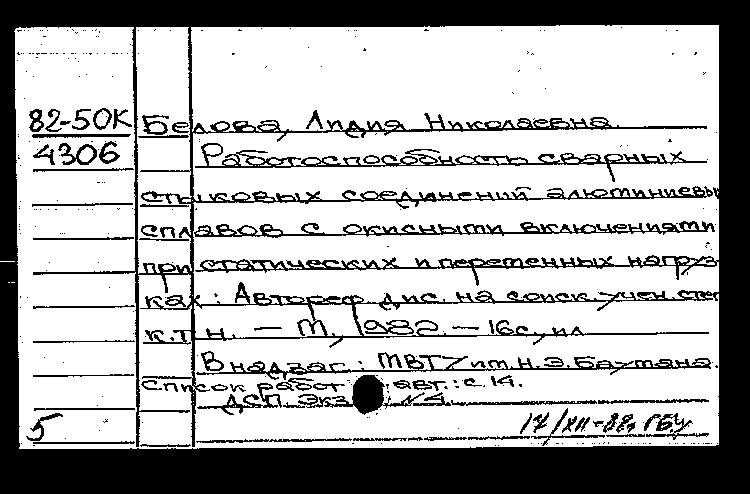 82-50К Белова, Лидия Николаевна.
4306 Работоспособность сварных
стыковых соединений алюминиевы
сплавов с окисными включениями
при статических и переменных нагруз-
ках: Автореф. дис. на соиск. учен. степ
к.т.н. — М., 1982. — 16с., ил
В надзаг.: МВТУ им. Н.Э. Баумана.
Список работ авт.: с. 14.
ДСП. Экз. №4.
5 17/XII-88, ГБУ